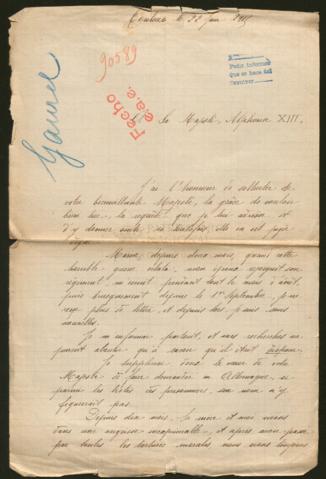 Toulouse le 22 juin 1915
90589
Fecho
e.a.e.
Pedir informes
que se hace fiel
Gaurel
Sa Majesté Alphonse XIII,
J'ai l'honneur de solliciter de
votre bienveillante Majesté, la grâce de vouloir
bien lire, la requête que je lui adresse et
d'y donner suite, si toutefois, elle en est jugée
digne.
Mariée, depuis deux mois, quand cette
horrible guerre éclata, mon époux rejoignit son
régiment m'écrivit pendant tout le mois d'août,
puis brusquement depuis le 1er Septembre, je ne
reçus plus de lettre, et depuis lors, je suis sans
nouvelles.
Je m'informai partout, et mes recherches ne
purent aboutir qu'à savoir qu'il était disparu.
Je supplierai donc le cœur de votre
Majesté de faire demander en Allemagne, si
parmi les listes des prisonniers, son nom n'y
figurerait pas.
Depuis dix mois, sa mère et moi vivons
dans une angoisse inexprimable, et après avoir passé
par toutes les tortures morales, nous nous trouvons